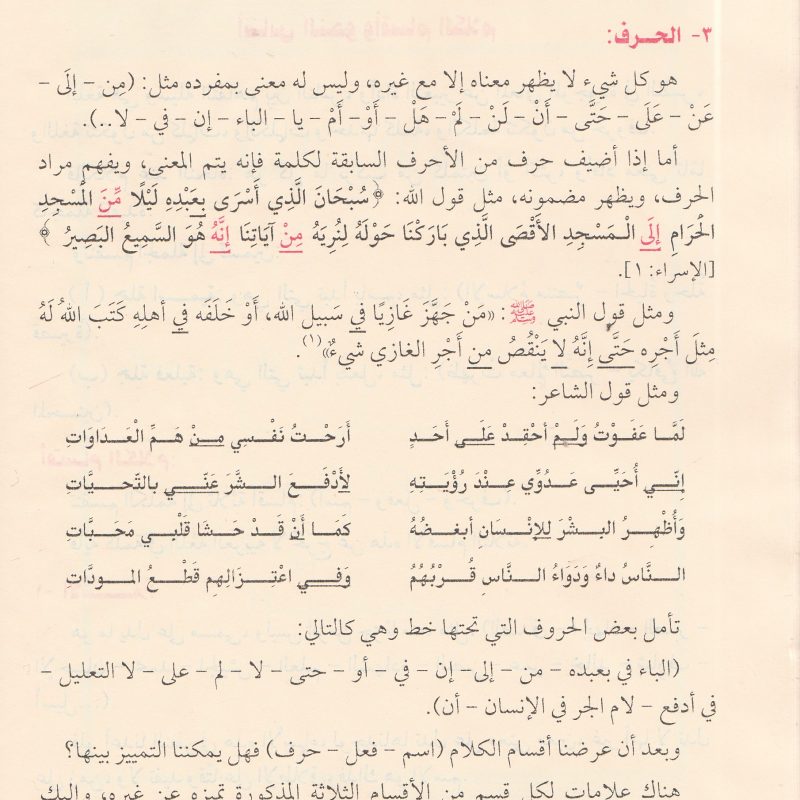 ٣- الحـرف:
هو كل شيء لا يظهر معناه إلا مع غيره، وليس له معنى بمفرده مثل: (مِن – إلَى –
عَنْ – عَلَى – حَتَّى – أَنْ – لَنْ – لَمْ – هَلْ – أَوْ – أَمْ – يا – الباء – إن – في – لا..).
أما إذا أضيف حرف من الأحرف السابقة لكلمة فإنه يتم المعنى، ويفهم مراد
الحرف، ويظهر مضمونه، مثل قول الله: ﴿سُبْحَانَ الَّذِي أَسْرَى بِعَبْدِهِ لَيْلًا مِّنَ الْمَسْجِدِ
الْحَرَامِ إِلَى الْـمَسْجِدِ الأَقْصَى الَّذِي بَارَكْنَا حَوْلَهُ لِنُرِيَهُ مِنْ آيَاتِنَا إِنَّهُ هُوَ السَّمِيعُ البَصِيرُ ﴾
[الإسراء: ١].
ومثل قول النبي ﷺ: «مَنْ جَهَّزَ غَازِيًا فِي سَبِيل الله، أَوْ خَلَفَه فِي أهلِهِ كَتَبَ اللهُ لَهُ
مِثلَ أَجْرِه حَتَّى إِنَّهُ لا يَنْقُصُ مِن أَجْرِ الغازي شيءٌ»(١).
ومثل قول الشاعر:
لَمَّا عَفَوْتُ وَلَمْ أحْقِدْ عَلَى أَحَدٍ أَرَحْـتُ نَفْـسِي مِـنْ هَمِّ الْعَـدَاوَاتِ
إِنِّي أُحَيِّي عَـدُوِّي عِنْـدَ رُؤْيَتِـهِ لِأَدْفَـعَ الـشَّرَ عَنِّـي بالتَّحِيَّـاتِ
وَأُظْهِـرُ البِـشْرَ لِلإِنْـسَانِ أبغـضُهُ كَمَـا أَنْ قَـدْ حَـشَا قَلْبِـي مَحَبَّاتِ
الـنَّاسُ داءٌ وَدَوَاءُ الـنَّاسِ قُـرْبُهُمُ وَفِـي اعْتِـزَالِهِم قَطْـعُ المـودَّاتِ
تأمل بعض الحروف التي تحتها خط وهي كالتالي:
(الباء في بعبده – من – إلى – إن – في – أو – حتى – لا – لم – على – لا التعليل –
في أدفع – لام الجر في الإنسان – أن).
وبعد أن عرضنا أقسام الكلام (اسم – فعل – حرف) فهل يمكننا التمييز بينها؟
هناك علامات لكل قسم من الأقسام الثلاثة المذكورة تميزه عن غيره، وإليك